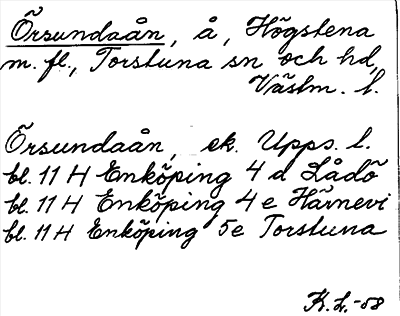 Örsundaån, å, Högstena
m. fl., Torstuna sn och hd,
Västm. l.
Örsundaån, ek. Upps. l.
bl. 11 H Enköping 4 d Lådö
bl. 11 H Enköping 4 e Härnevi
bl. 11 H Enköping 5e Torstuna
K.L.-58